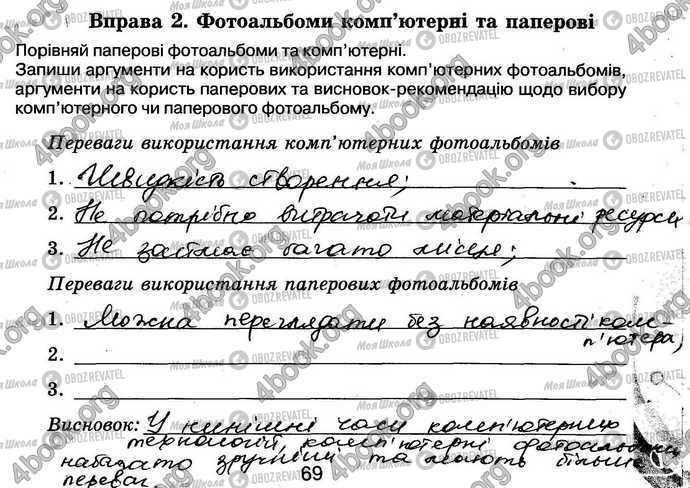 Вправа 2. Фотоальбоми комп'ютерні та паперові
Порівняй паперові фотоальбоми та комп'ютерні.
Запиши аргументи на користь використання комп'ютерних фотоальбомів,
аргументи на користь паперових та висновок-рекомендацію щодо вибору
комп'ютерного чи паперового фотоальбому.
Переваги використання комп'ютерних фотоальбомів
1. Швидкість створення;
2. Не потрібно витрачати матеріальні ресурси
3. Не займає багато місця;
Переваги використання паперових фотоальбомів
1. Можна переглядати без наявності ком-
п'ютера,
2.
3.
Висновок: У нинішні часи комп'ютерних
технологій, комп'ютерні фотоальбоми
набагато зручніші та мають більше
переваг.
69